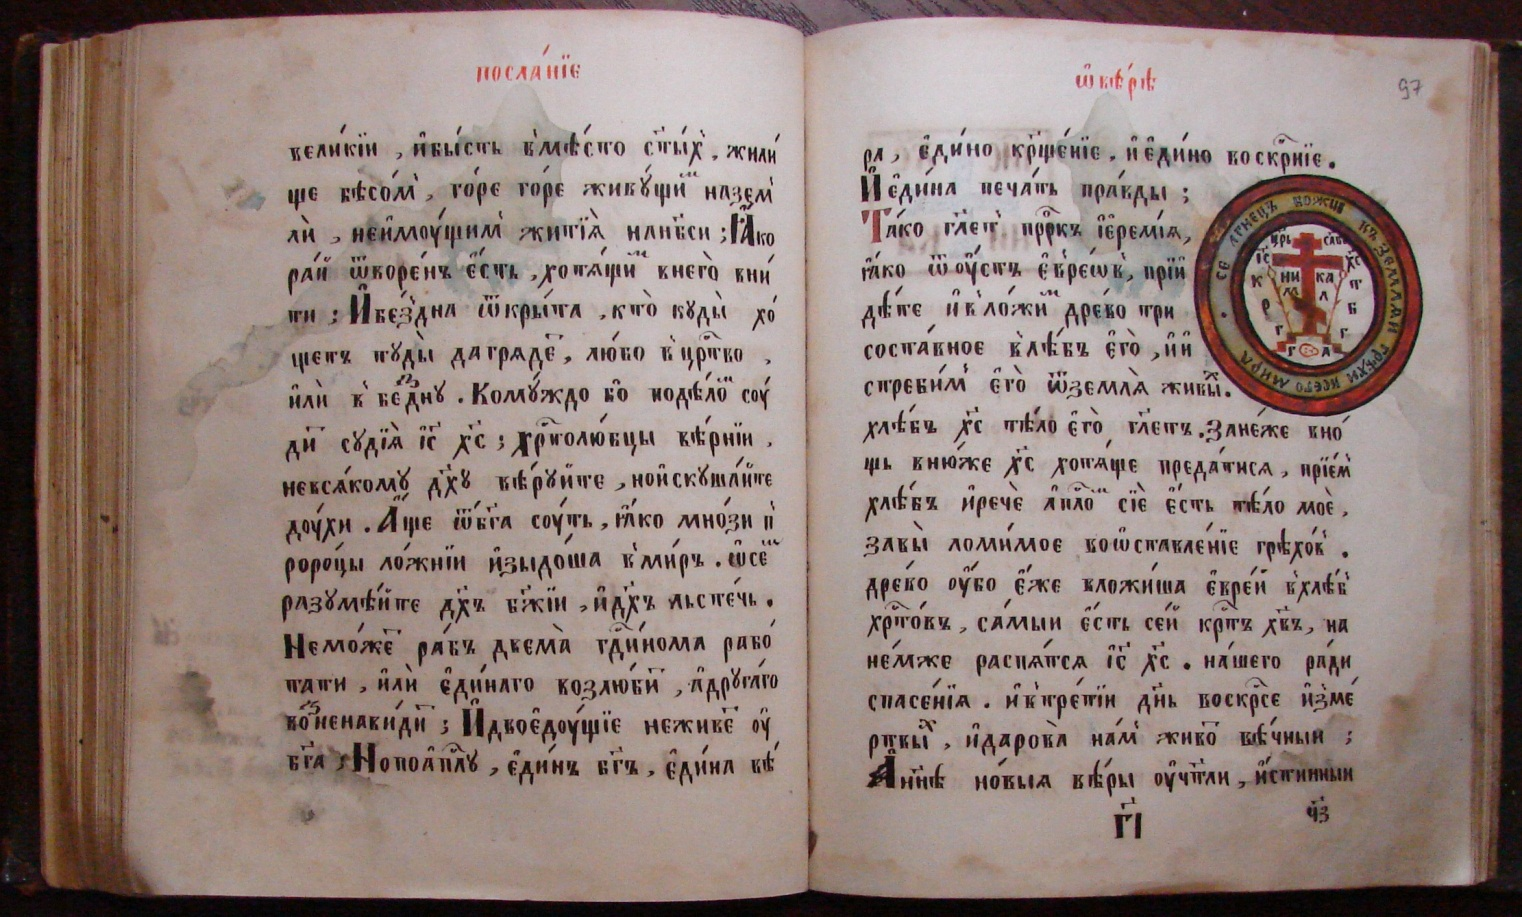 посла́нїе
вели́кїи , и҆бы́сть вмѣ́сто ст҃ы́хъ , жили́
ще бѣсо́мъ , го́ре го́ре живꙋ́щим наземъ
лѝ , неи҆мѹ́щимъ житїѧ̀ илибѣси ; Ꙗ҆́ко
ра́й ѿворе́нъ є҆́сть , хотѧ́щим внего̀ вни́
ти ; И҆бе́здна ѿкры́та , кто̀ кꙋды̀ хо́
щетъ тꙋды̀ да грѧде́т , лю́бо вцр҃тво ,
и҆лѝ в бе́зднꙋ . Комꙋ́ждо бо̀ подѣло́м сѹ́
ди́т сꙋдїѧ̀ і҆с҃ х҃с ; хр҃толю́бцы вѣ́рнїи ,
невсѧ́комꙋ д҃хꙋ вѣ́рꙋйте , нои҆скꙋша́йте
дѹ́хи . А҆́ще ѿбг҃а сѹ́ть , ꙗ҆́ко мно́зи п
роро́цы ло́жнїи и҆зыдо́ша вми́ръ . ѡ҆се́м
разꙋмѣ́йте д҃хъ бж҃їи , и҆д҃хъ льсте́чь .
Немо́жет ра́бъ двема̀ гд҃и́нома рабо́
тати , и҆лѝ є҆ди́наго возлю́бит , а҆дрꙋга́го
возненави́дит ; И҆двоедѹ́щїе неживе́т ѹ҆
бг҃а ; Нопоа҆пл҃ꙋ , є҆ди́нъ бг҃ъ , є҆ди́на вѣ́
ѡ҆вѣ́рѣ
97
ра , є҆ди́но кр҃ще́нїе , и҆ є҆ди́но воскр҃нїе .
И҆ є҆ди́на печа́ть пра́вды ;
Та́ко гл҃етъ пр҃ркъ і҆еремі́ѧ ,
ꙗ҆́ко ѿ ѹ҆́стъ є҆вре́ѡвъ , прїи
дѣ́те и҆ вложи́м дре́во три
соста́вное влѣ́бъ є҆го̀ , и҆ и
стреби́мъ є҆го̀ ѿземлѧ̀ живы́х .
хлѣ́бъ х҃с тѣ́ло є҆го̀ гл҃етъ . Зане́же вно́
щь вню́же х҃с хотѧ́ще преда́тисѧ , прїе́мъ
хлѣ́бъ и҆речѐ а҆пл҃ом сїѐ є҆́сть тѣ́ло моѐ ,
завы̀ ломи́мое воѡ҆ставле́нїе грѣхо́въ .
дре́во ѹ҆́бо є҆́же вложи́ша є҆вре́й вхлѣ́бъ
хр҃то́въ , са́мыи є҆́сть се́й кр҃тъ х҃въ , на
не́мже распѧ́тсѧ і҆с҃ х҃с . на́шего ра́ди
спасе́нїѧ . и҆ втре́тїи дн҃ь воскр҃се и҆зме́
ртвы́х , и҆дарова̀ на́мъ живо́т вѣ́чныи ;
А҆ нн҃ѣ но́выѧ вѣ́ры ѹ҆чт҃ли , и҆́стинныи
г҃і
ч҃з
СЕ АГНЕЦЪ БОЖИЙ ВЪЗЕМЛѦЙ ГРѢХИ ВСЕГО МИРА
ЦРЬ СЛВЫ
ІС ХС
НИ КА
К Т
Р Б
М Л
Г Г
Г А